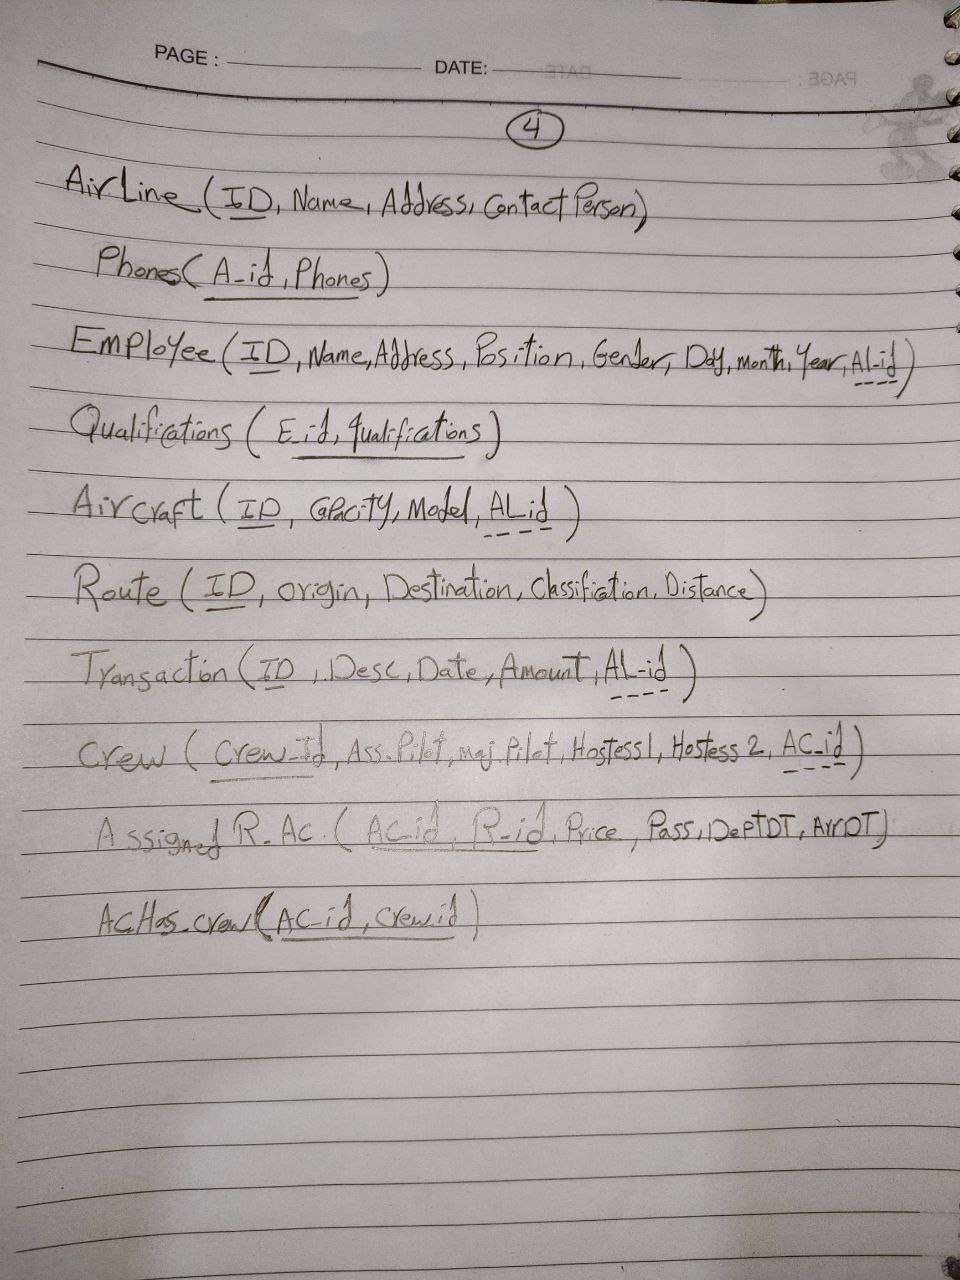 PAGE : DATE:
4
AirLine (ID, Name, Address, Contact Person)
Phones( A_id, Phones)
Employee (ID, Name, Address, Position, Gender, Day, month, Year, Al-id)
Qualifications ( E_id, qualifications)
Aircraft (ID, Capacity, Model, AL_id )
Route (ID, origin, Destination, Classification, Distance)
Transaction (ID, Desc, Date, Amount, AL-id )
Crew ( Crew_Id, Ass.Pilot, maj.Pilot, Hostess1, Hostess 2, AC_id)
Assigned R_Ac. ( AC_id, R_id, Price, Pass, DeptDT, ArrDT)
AC.Has_crew( AC-id, Crew id )